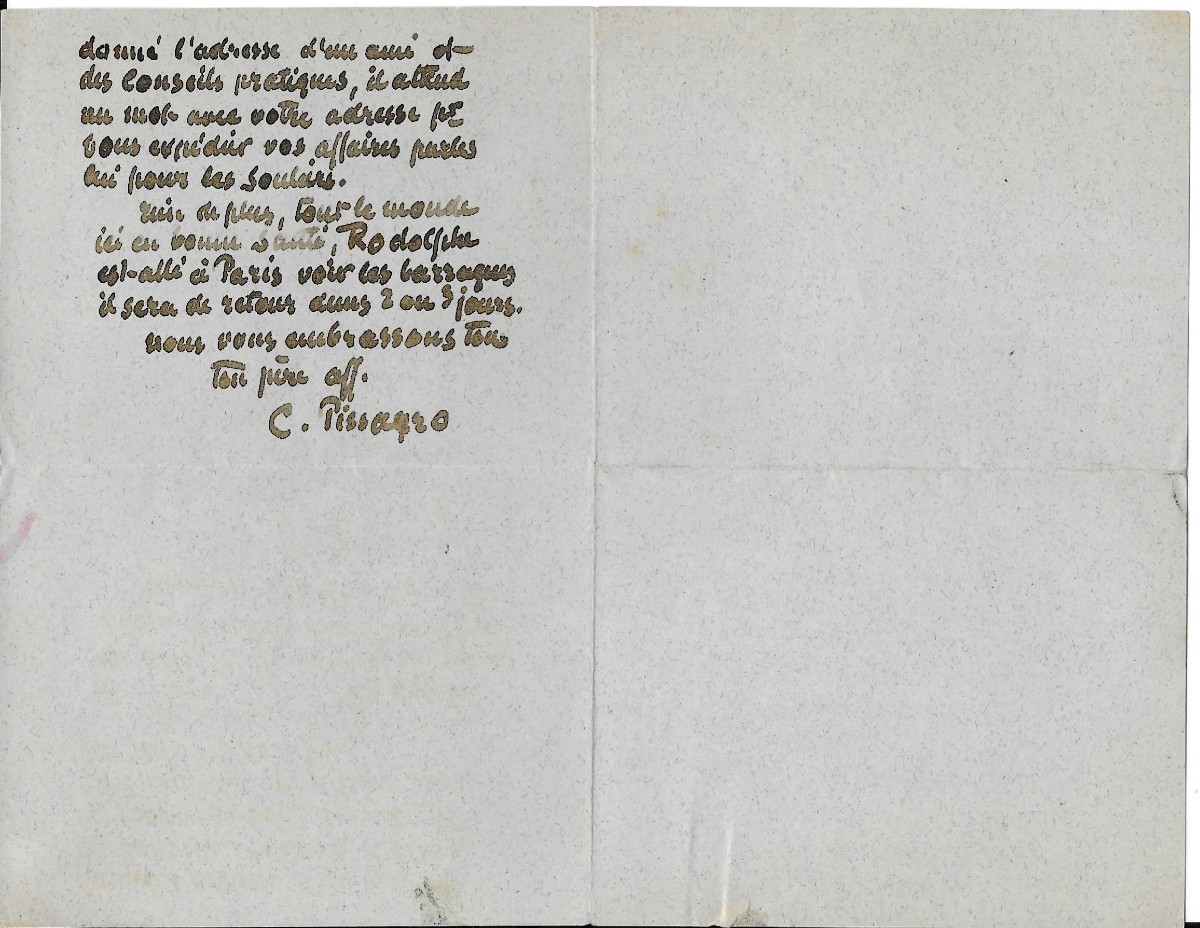 donné l'adresse d'un ami et
des conseils pratiques, il attend
un mot avec votre adresse pr
vous expédier vos affaires parles
lui pour les souliers.
rien de plus, tout le monde
ici en bonne santé, Rodolphe
est allé à Paris voir les barraques
il sera de retour dans 2 ou 3 jours.
nous vous embrassons tous
ton père aff.
C. Pissarro